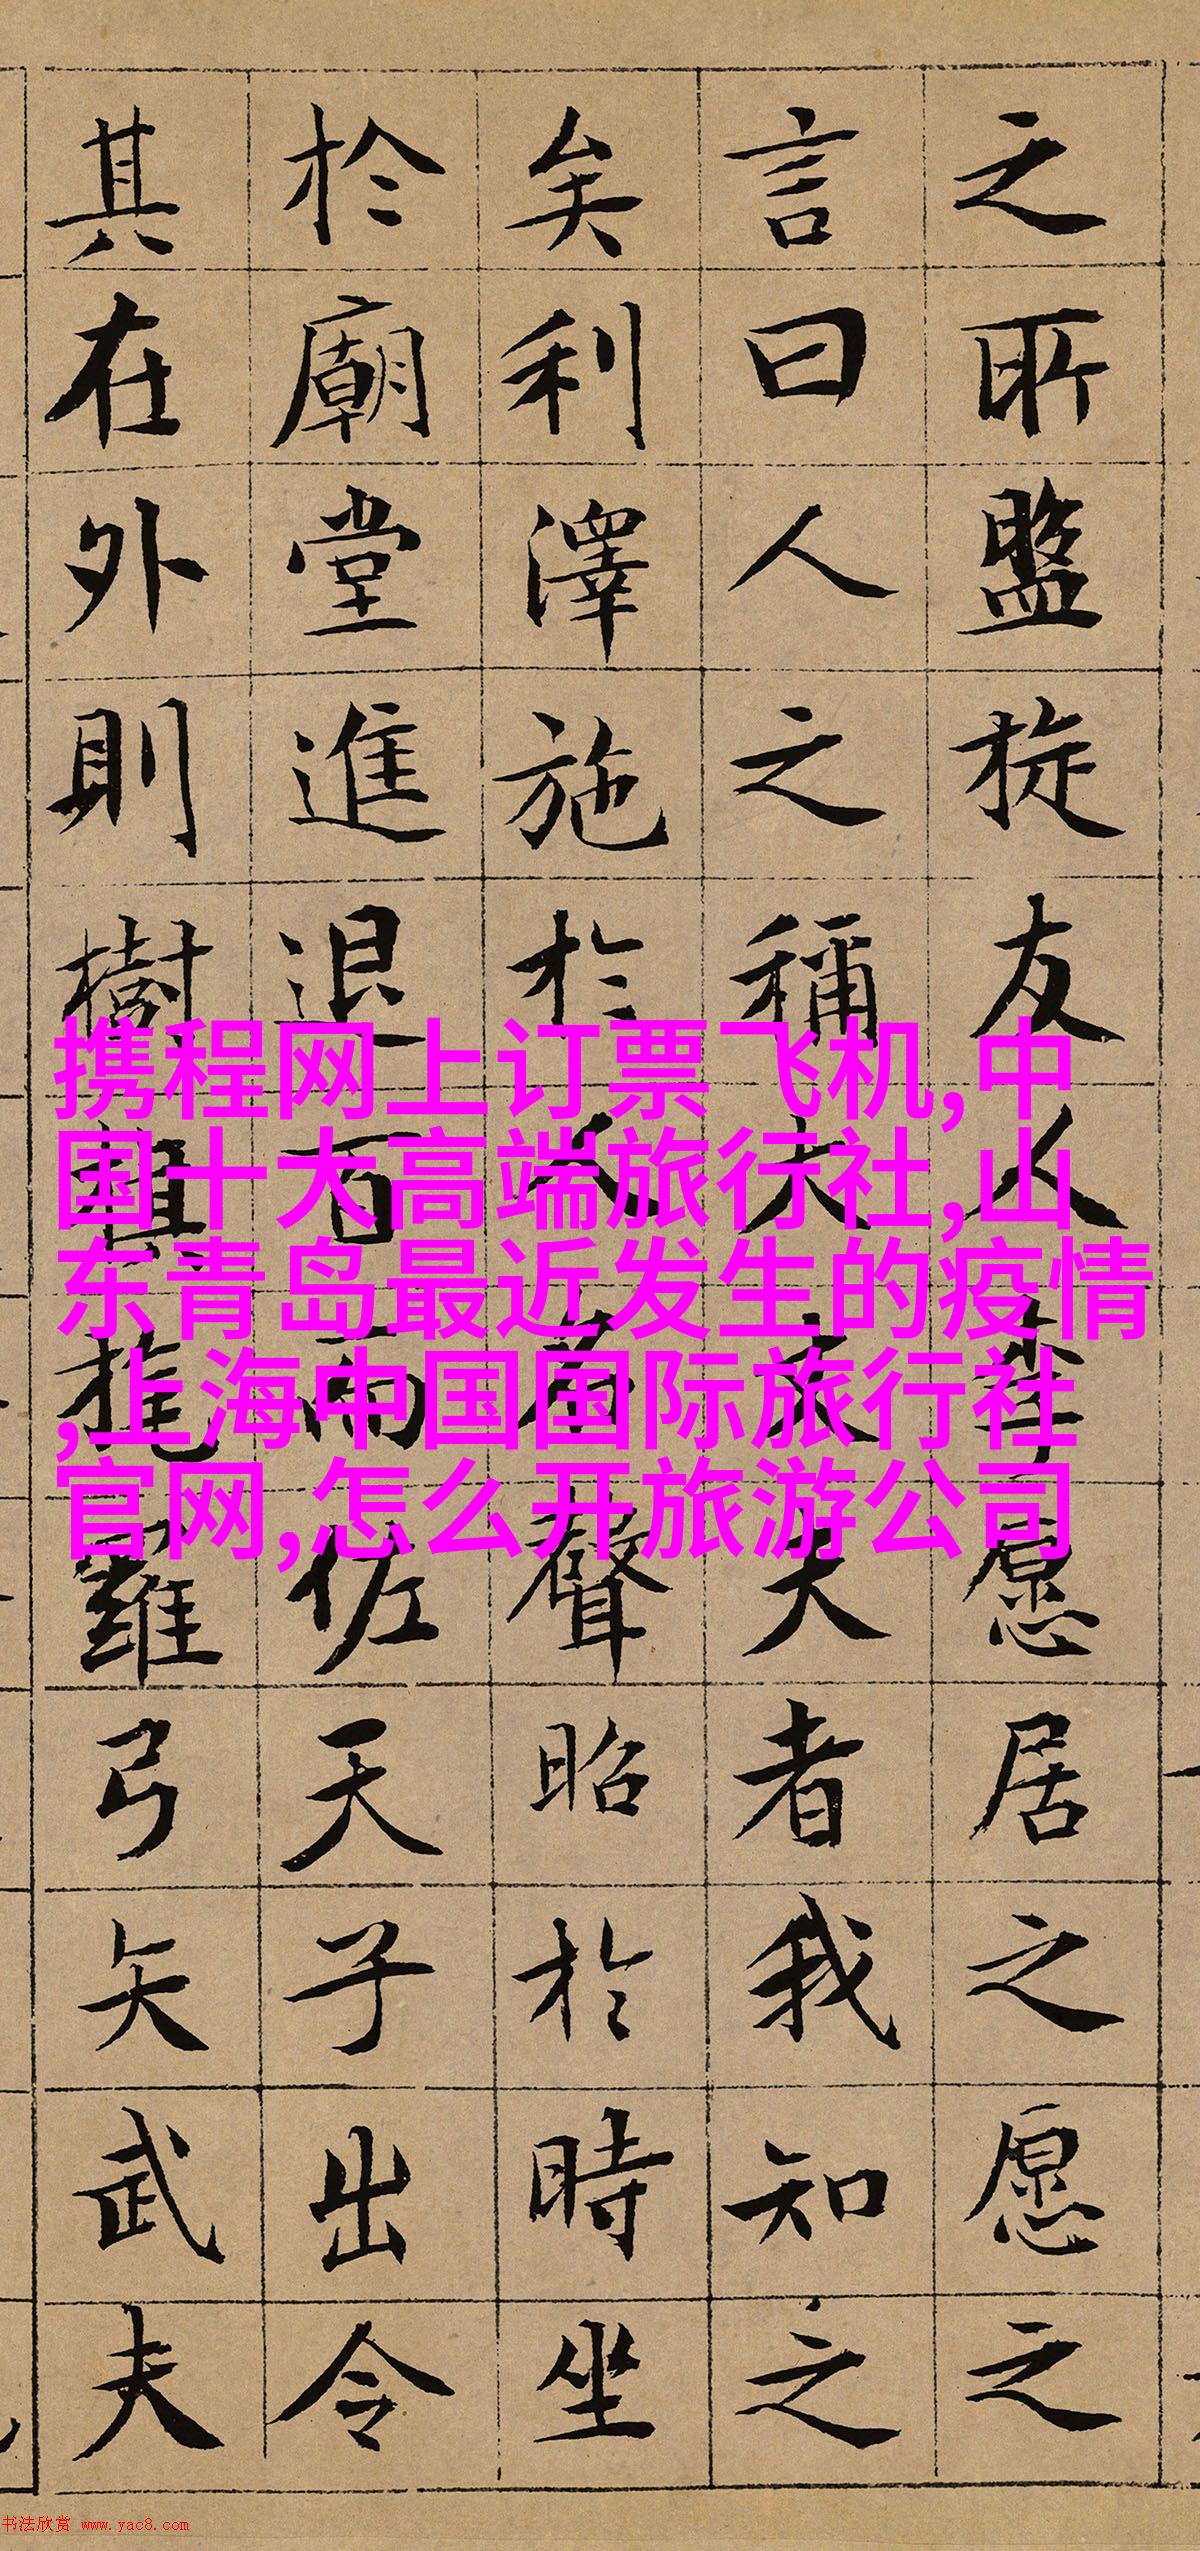 之所盤旋友人李愿居之愿之
言曰人之稱大丈夫者我知之
矣利澤施於人名聲昭於時坐
於廟堂進退百而佐天子出令
其在外則樹旄羅弓矢武夫
携程网上订票飞机,中
国十大高端旅行社,山
东青岛最近发生的疫情
,上海中国国际旅行社
官网,怎么开旅游公司
书法欣赏 www.yac8.com